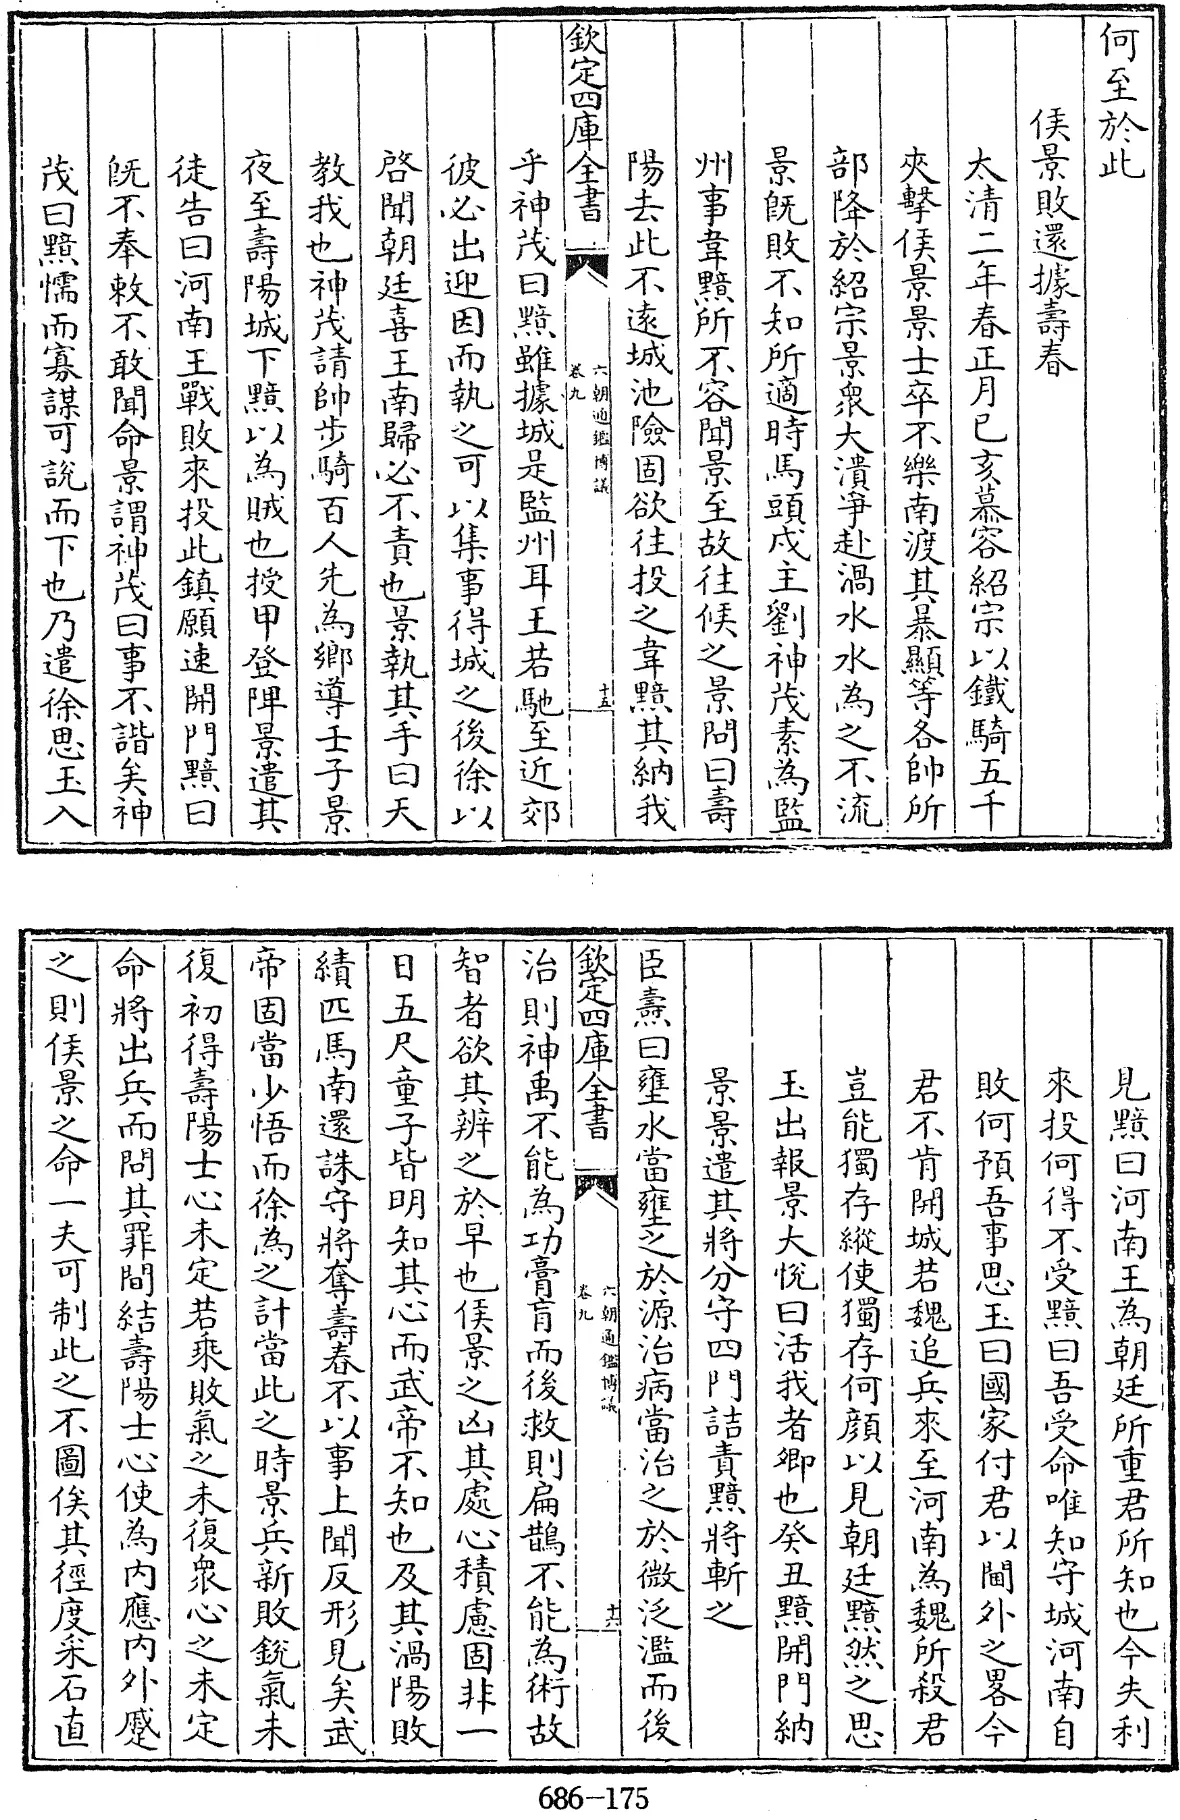 何至於此
侯景敗還據壽春
太清二年春正月己亥慕容紹宗以鐵騎五千
夾擊侯景景士卒不樂南渡其暴顯等各帥所
部降於紹宗景衆大潰爭赴渦水水為之不流
景既敗不知所適時馬頭戍主劉神茂素為監
州事韋黯所不容聞景至故往候之景問曰壽
陽去此不遠城池險固欲往投之韋黯其納我
欽定四庫全書
六朝通鑑博議
卷九
十五
乎神茂曰黯雖據城是監州耳王若馳至近郊
彼必出迎因而執之可以集事得城之後徐以
啓聞朝廷喜王南歸必不責也景執其手曰天
教我也神茂請帥步騎百人先為鄉導壬子景
夜至壽陽城下黯以為賊也授甲登陴景遣其
徒告曰河南王戰敗來投此鎮願速開門黯曰
既不奉敕不敢聞命景謂神茂曰事不諧矣神
茂曰黯懦而寡謀可說而下也乃遣徐思玉入
見黯曰河南王為朝廷所重君所知也今失利
來投何得不受黯曰吾受命唯知守城河南自
敗何預吾事思玉曰國家付君以閫外之畧今
君不肯開城若魏追兵來至河南為魏所殺君
豈能獨存縱使獨存何顏以見朝廷黯然之思
玉出報景大悅曰活我者卿也癸丑黯開門納
景景遣其將分守四門詰責黯將斬之
臣燾曰壅水當壅之於源治病當治之於微泛濫而後
欽定四庫全書
六朝通鑑博議
卷九
十六
治則神禹不能為功膏肓而後救則扁鵲不能為術故
智者欲其辨之於早也侯景之凶其處心積慮固非一
日五尺童子皆明知其心而武帝不知也及其渦陽敗
績匹馬南還誅守將奪壽春不以事上聞反形見矣武
帝固當少悟而徐為之計當此之時景兵新敗銳氣未
復初得壽陽士心未定若乘敗氣之未復衆心之未定
命將出兵而問其罪間結壽陽士心使為內應內外慼
之則侯景之命一夫可制此之不圖俟其徑度采石直
686-175